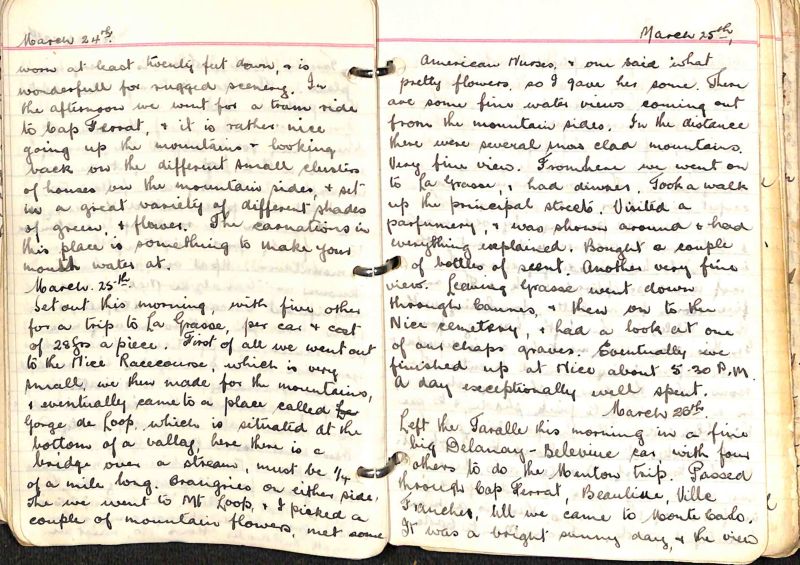 March 24th.
worn at least twenty feet down, & is
wonderfull for rugged scenery. In
the afternoon we went for a tram ride
to Cap Ferrat, & it is rather nice
going up the mountains & looking
back on the different small clusters
of houses on the mountain sides, & set
in a great variety of different shades
of green, & flower. The carnations in
this place is something to make your
mouth water at.
March. 25th.
Set out this morning, with five other
for a trip to La Grasse, per car & cost
of 28frs a piece. First of all we went out
to the Nice Racecourse, which is very
small, we then made for the mountains,
& eventually came to a place called
Gorge de Loop, which is situated at the
bottom of a valley, here there is a
bridge over a stream, must be 1/4
of a mile long. Orangries on either side.
The we went to Mt Loop, & I picked a
couple of mountain flowers, met some
March 25th,
American Nurses, & one said 'what
pretty flowers, so I gave her some. There
are some fine water views coming out
from the mountain sides. In the distance
there were several snow clad mountains.
Very fine view. From here we went on
to La Grasse, & had dinner. Took a walk
up the principal streets. Visited a
parfumery, & was shown around & had
everything explained. Bought a couple
of bottles of scent. Another very fine
view. Leaving Grasse went down
through Cannes, & then on to the
Nice cemetery, & had a look at one
of our chaps graves. Eventually we
finished up at Nice about 5.30 P.M.
A day exceptionally well spent.
March 26th.
Left the Taralle this morning in a fine
big Delanay-Belevine car, with four
others to do the Menton trip. Passed
through Cap Ferrat, Beauline, Ville
Franches, till we came to Monte Carlo.
It was a bright sunny day, & the view